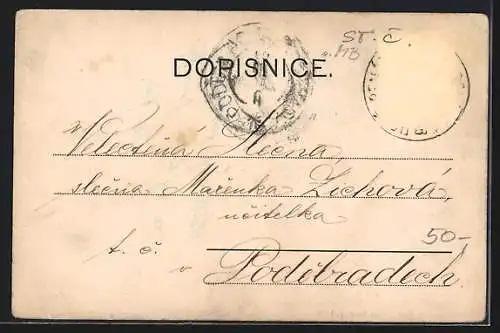 ST. Č.
DOPISNICE.
Velectěná slečna
slečna Mařenka Zichová,
učitelka
50-
t. č.
v Poděbradech.